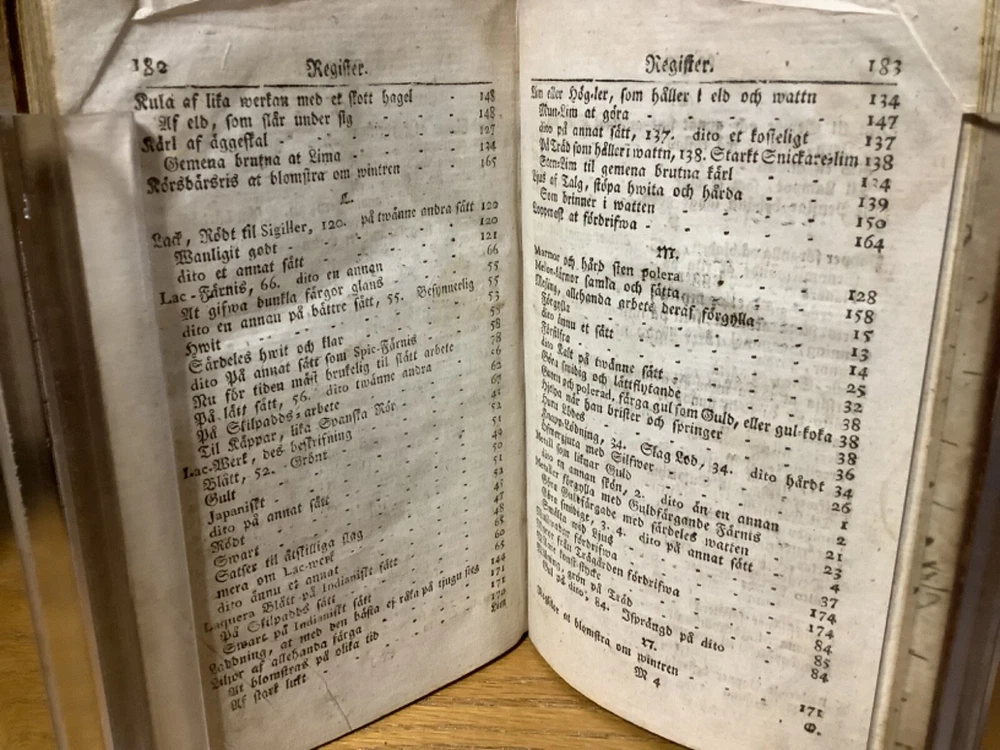 182 Register.
Kula af lika werkan med et skott hagel - 148
Af eld, som slår under sig - - 148
Kärl af äggeskal - - - 127
Gemena brutna at Lima - - 134
Körsbärsris at blomstra om wintren - 165
L.
Lack, Rödt til Sigiller, 120. på twänne andra sätt 120
Wanligit godt - - - 120
dito et annat sätt - - - 121
Lac-Färnis, 66. dito en annan - - 66
At gifwa dunkla färgor glans - 55
dito en annan på bättre sätt, 55. Besynnerlig 55
Hwit - - - 53
Särdeles hwit och klar - -
dito På annat sätt som Spic-Färnis - 58
Nu för tiden mäst brukelig til slätt arbete 78
På lätt sätt, 56. dito twänne andra
På Skilpadds-arbete - - 62
Til Käppar, lika Spanska Rör - - 67
Lac-Werk, des beskrifning - -
Blått, 52. Grönt - - 52
Gult - - - 51
Japaniskt - - - 49
dito på annat sätt - - 50
Rödt - - - 51
Swart - - -
Satser til åtskilliga slag - - 47
mera om Lac-werk - - 48
dito ännu et annat - -
Laquera Blått på Indianiskt sätt - 60
På Skilpadds sätt - -
Swart på Indianiskt sätt - -
Laddning, at med den bästa ej råka på tjugu steg 144
Liljor af allehanda färga - - 171
At blomstras på olika tid - - 171
Af stark lukt - - 170
Lim
Register. 183
Lim eller Hög-ler, som håller i eld och wattn 134
Mun-Lim at göra - - - 147
dito på annat sätt, 137. dito et kosteligt 137
På Träd som håller i wattn, 138. Starkt Snickare-lim 138
Sten-Lim til gemena brutna kärl - 124
Ljus af Talg, stöpa hwita och hårda - 139
Som brinner i watten - - 150
Loppmest at fördrifwa - - 164
M.
Marmor och hård sten polera - - 128
Melon-kärnor samla och sätta - - 158
Mässing, allehanda arbete deraf förgylla - 15
Förgylla - - - 13
dito ännu et sätt - - 14
Försilfra - - - 25
dito Kalt på twänne sätt - - 32
Göra smidig och lättflytande - - 38
Guten och polerad, färga gul som Guld, eller gul-koka 38
Hjelpa när han brister och springer - 38
Huru Lödes - - - 36
Knapp-Lödning, 34. Slag Lod, 34. dito hårdt 34
Öfwergjuta med Silfwer - - 26
Metall som liknar Guld - - 1
dito en annan skön, 2. dito än en annan 2
Metaller förgylla med Guldfärgande Färnis 21
Göra Guldfärgade med särdeles watten 23
Göra smidigt, 3. 4. dito på annat sätt 4
Smälta wid Ljus - - 37
fördrifwa - - 174
från Trägården fördrifwa - 174
konst-stycke - - 84
grön på Träd - - 85
Gul på dito, 84. Isprängd på dito - 84
N.
at blomstra om wintren - - 171
M 4
O.